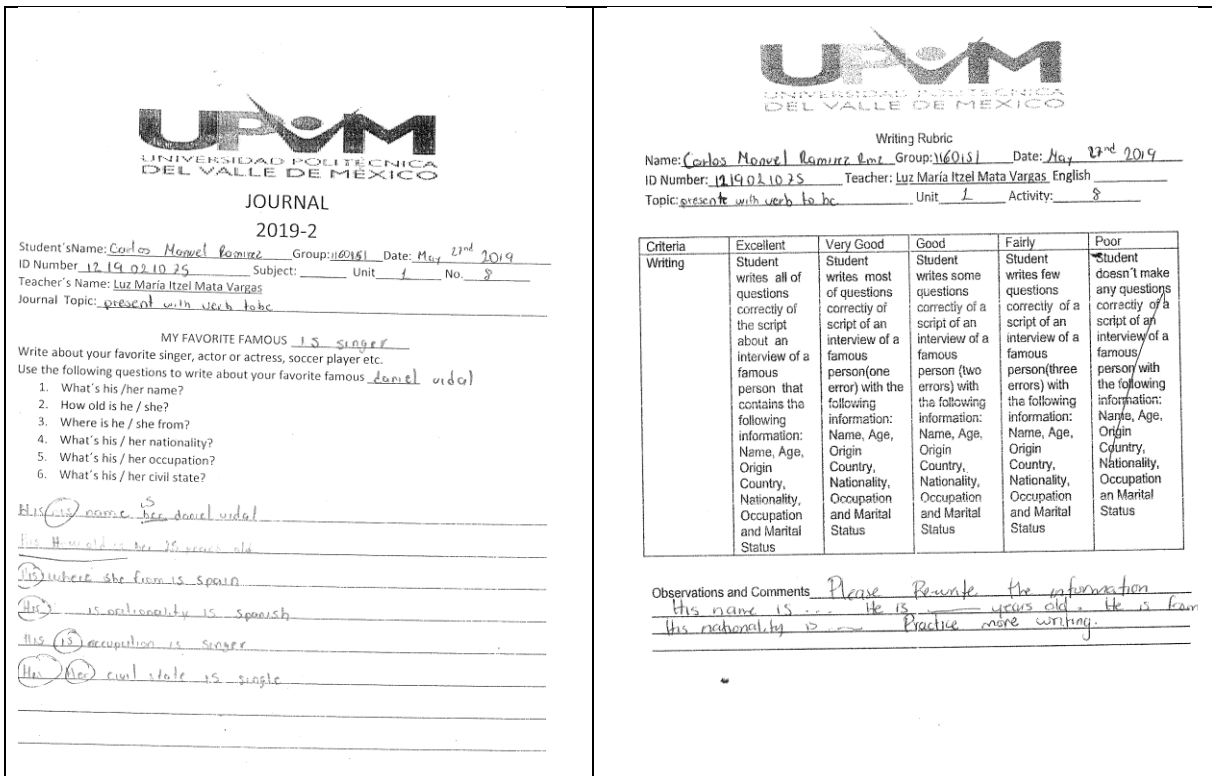 UPVM
UNIVERSIDAD POLITÉCNICA
DEL VALLE DE MÉXICO
JOURNAL
2019-2
Student´sName: Carlos Manuel Ramirez Group: 1160151 Date: May 27nd 2019
ID Number 12 19 02 10 75 Subject: Unit 1 No. 8
Teacher's Name: Luz María Itzel Mata Vargas
Journal Topic: present with verb tobe
MY FAVORITE FAMOUS is singer
Write about your favorite singer, actor or actress, soccer player etc.
Use the following questions to write about your favorite famous daniel vidal
1. What´s his /her name?
2. How old is he / she?
3. Where is he / she from?
4. What´s his / her nationality?
5. What´s his / her occupation?
6. What´s his / her civil state?
is
His is name her daniel vidal
His How old is her years old
His where she from is spain
His is nationality is spanish
His is occupation is singer
His Her civil state is single
UPVM
UNIVERSIDAD POLITECNICA
DEL VALLE DE MEXICO
Writing Rubric
Name: Carlos Manuel Ramirez Rmz Group: 1160151 Date: May 27nd 2019
ID Number: 1219021075 Teacher: Luz María Itzel Mata Vargas English
Topic: presente with verb to be Unit 1 Activity: 8
Criteria Excellent Very Good Good Fairly Poor
Writing
Student
writes all of
questions
correctly of
the script
about an
interview of a
famous
person that
contains the
following
information:
Name, Age,
Origin
Country,
Nationality,
Occupation
and Marital
Status
Student
writes most
of questions
correctly of
script of an
interview of a
famous
person(one
error) with the
following
information:
Name, Age,
Origin
Country,
Nationality,
Occupation
and Marital
Status
Student
writes some
questions
correctly of a
script of an
interview of a
famous
person (two
errors) with
the following
information:
Name, Age,
Origin
Country,
Nationality,
Occupation
and Marital
Status
Student
writes few
questions
correctly of a
script of an
interview of a
famous
person(three
errors) with
the following
information:
Name, Age,
Origin
Country,
Nationality,
Occupation
and Marital
Status
Student
doesn´t make
any questions
correctly of a
script of an
interview of a
famous
person with
the following
information:
Name, Age,
Origin
Country,
Nationality,
Occupation
an Marital
Status
Observations and Comments Please Re-write the information
His name is ... He is ___ years old. He is from
His nationality is ___ Practice more writing.